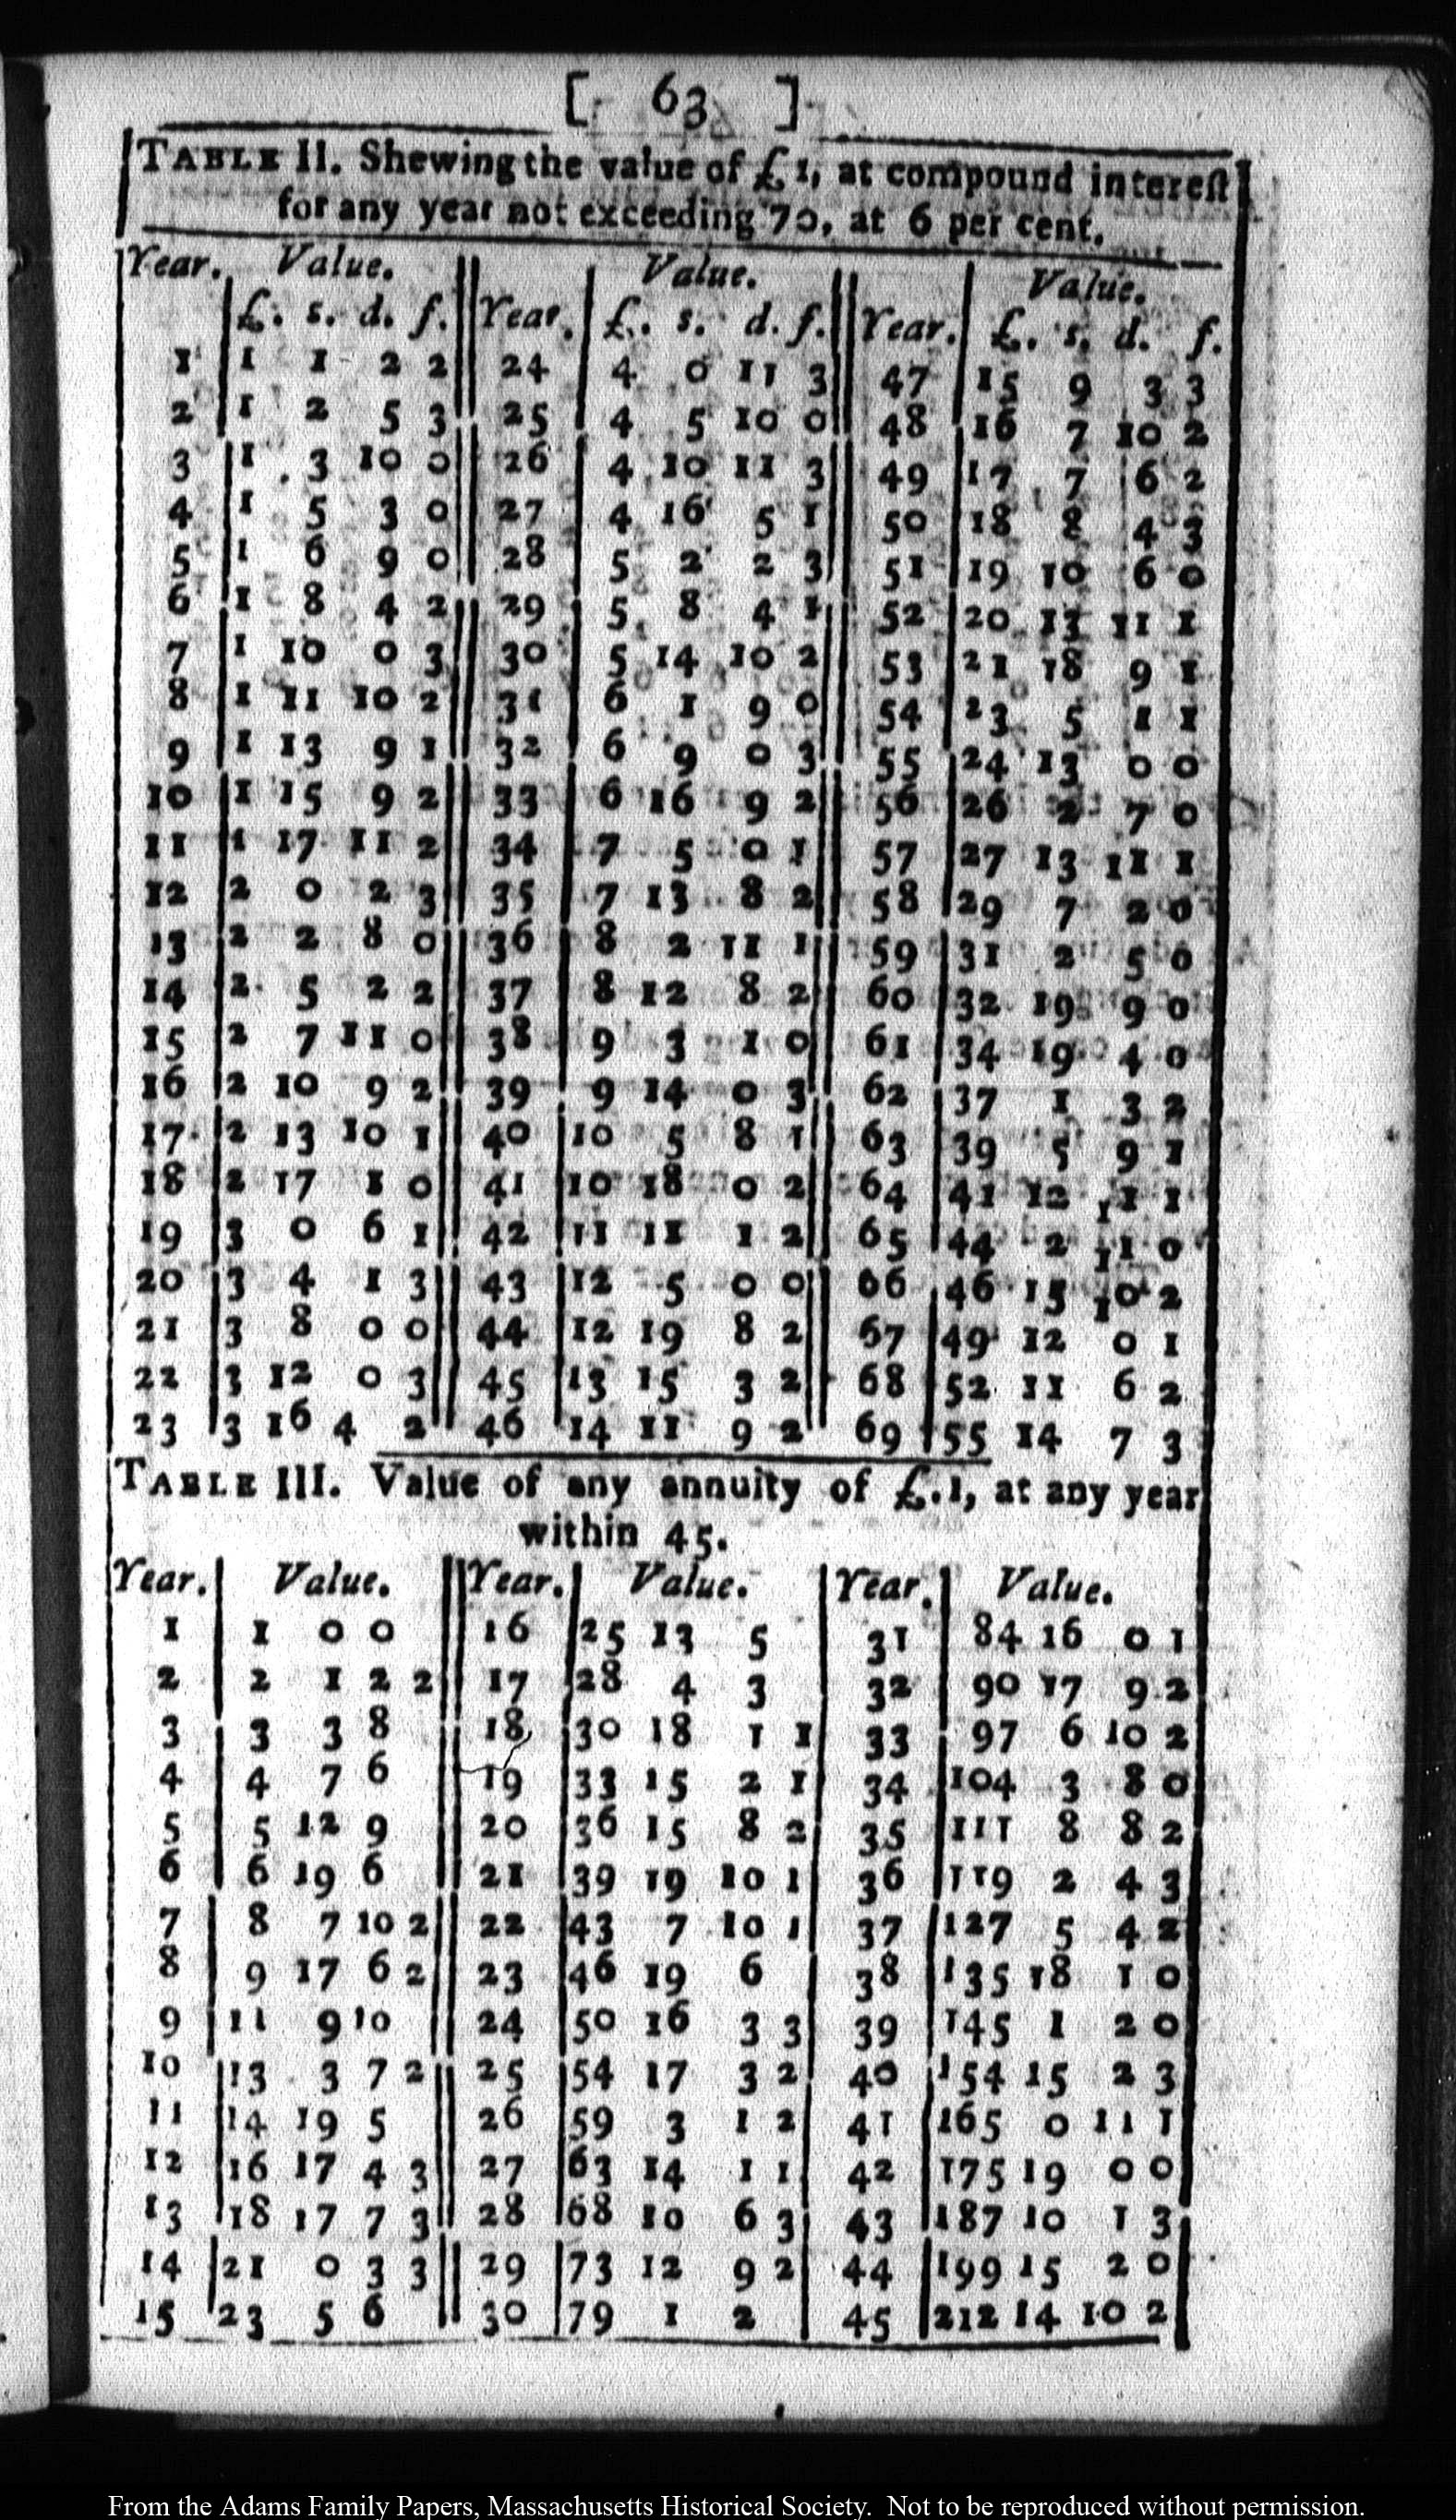 [ 63 ]
TABLE II. Shewing the value of £ 1, at compound intereſt
for any year not exceeding 70, at 6 per cent.
Year. Value. Value. Value.
£. s. d. f. Year. £. s. d. f. Year. £. s. d. f.
1 1 1 2 2 24 4 0 11 3 47 15 9 3 3
2 1 2 5 3 25 4 5 10 0 48 16 7 10 2
3 1 3 10 0 26 4 10 11 3 49 17 7 6 2
4 1 5 3 0 27 4 16 5 1 50 18 8 4 3
5 1 6 9 0 28 5 2 2 3 51 19 10 6 0
6 1 8 4 2 29 5 8 4 1 52 20 13 11 1
7 1 10 0 3 30 5 14 10 2 53 21 18 9 1
8 1 11 10 2 31 6 1 9 0 54 23 5 1 1
9 1 13 9 1 32 6 9 0 3 55 24 13 0 0
10 1 15 9 2 33 6 16 9 2 56 26 2 7 0
11 1 17 11 2 34 7 5 0 1 57 27 13 11 1
12 2 0 2 3 35 7 13 8 2 58 29 7 2 0
13 2 2 8 0 36 8 2 11 1 59 31 2 5 0
14 2 5 2 2 37 8 12 8 2 60 32 19 9 0
15 2 7 11 0 38 9 3 1 0 61 34 19 4 0
16 2 10 9 2 39 9 14 0 3 62 37 1 3 2
17 2 13 10 1 40 10 5 8 1 63 39 5 9 1
18 2 17 1 0 41 10 18 0 2 64 41 12 11 1
19 3 0 6 1 42 11 11 1 2 65 44 2 11 0
20 3 4 1 3 43 12 5 0 0 66 46 15 10 2
21 3 8 0 0 44 12 19 8 2 67 49 12 0 1
22 3 12 0 3 45 13 15 3 2 68 52 11 6 2
23 3 16 4 2 46 14 11 9 2 69 55 14 7 3
TABLE III. Value of any annuity of £.1, at any year
within 45.
Year. Value. Year. Value. Year. Value.
1 1 0 0 16 25 13 5 31 84 16 0 1
2 2 1 2 2 17 28 4 3 32 90 17 9 2
3 3 3 8 18 30 18 1 1 33 97 6 10 2
4 4 7 6 19 33 15 2 1 34 104 3 8 0
5 5 12 9 20 36 15 8 2 35 111 8 8 2
6 6 19 6 21 39 19 10 1 36 119 2 4 3
7 8 7 10 2 22 43 7 10 1 37 127 5 4 2
8 9 17 6 2 23 46 19 6 38 135 18 1 0
9 11 9 10 24 50 16 3 3 39 145 1 2 0
10 13 3 7 2 25 54 17 3 2 40 154 15 2 3
11 14 19 5 26 59 3 1 2 41 165 0 11 1
12 16 17 4 3 27 63 14 1 1 42 175 19 0 0
13 18 17 7 3 28 68 10 6 3 43 187 10 1 3
14 21 0 3 3 29 73 12 9 2 44 199 15 2 0
15 23 5 6 30 79 1 2 45 212 14 10 2
From the Adams Family Papers, Massachusetts Historical Society. Not to be reproduced without permission.